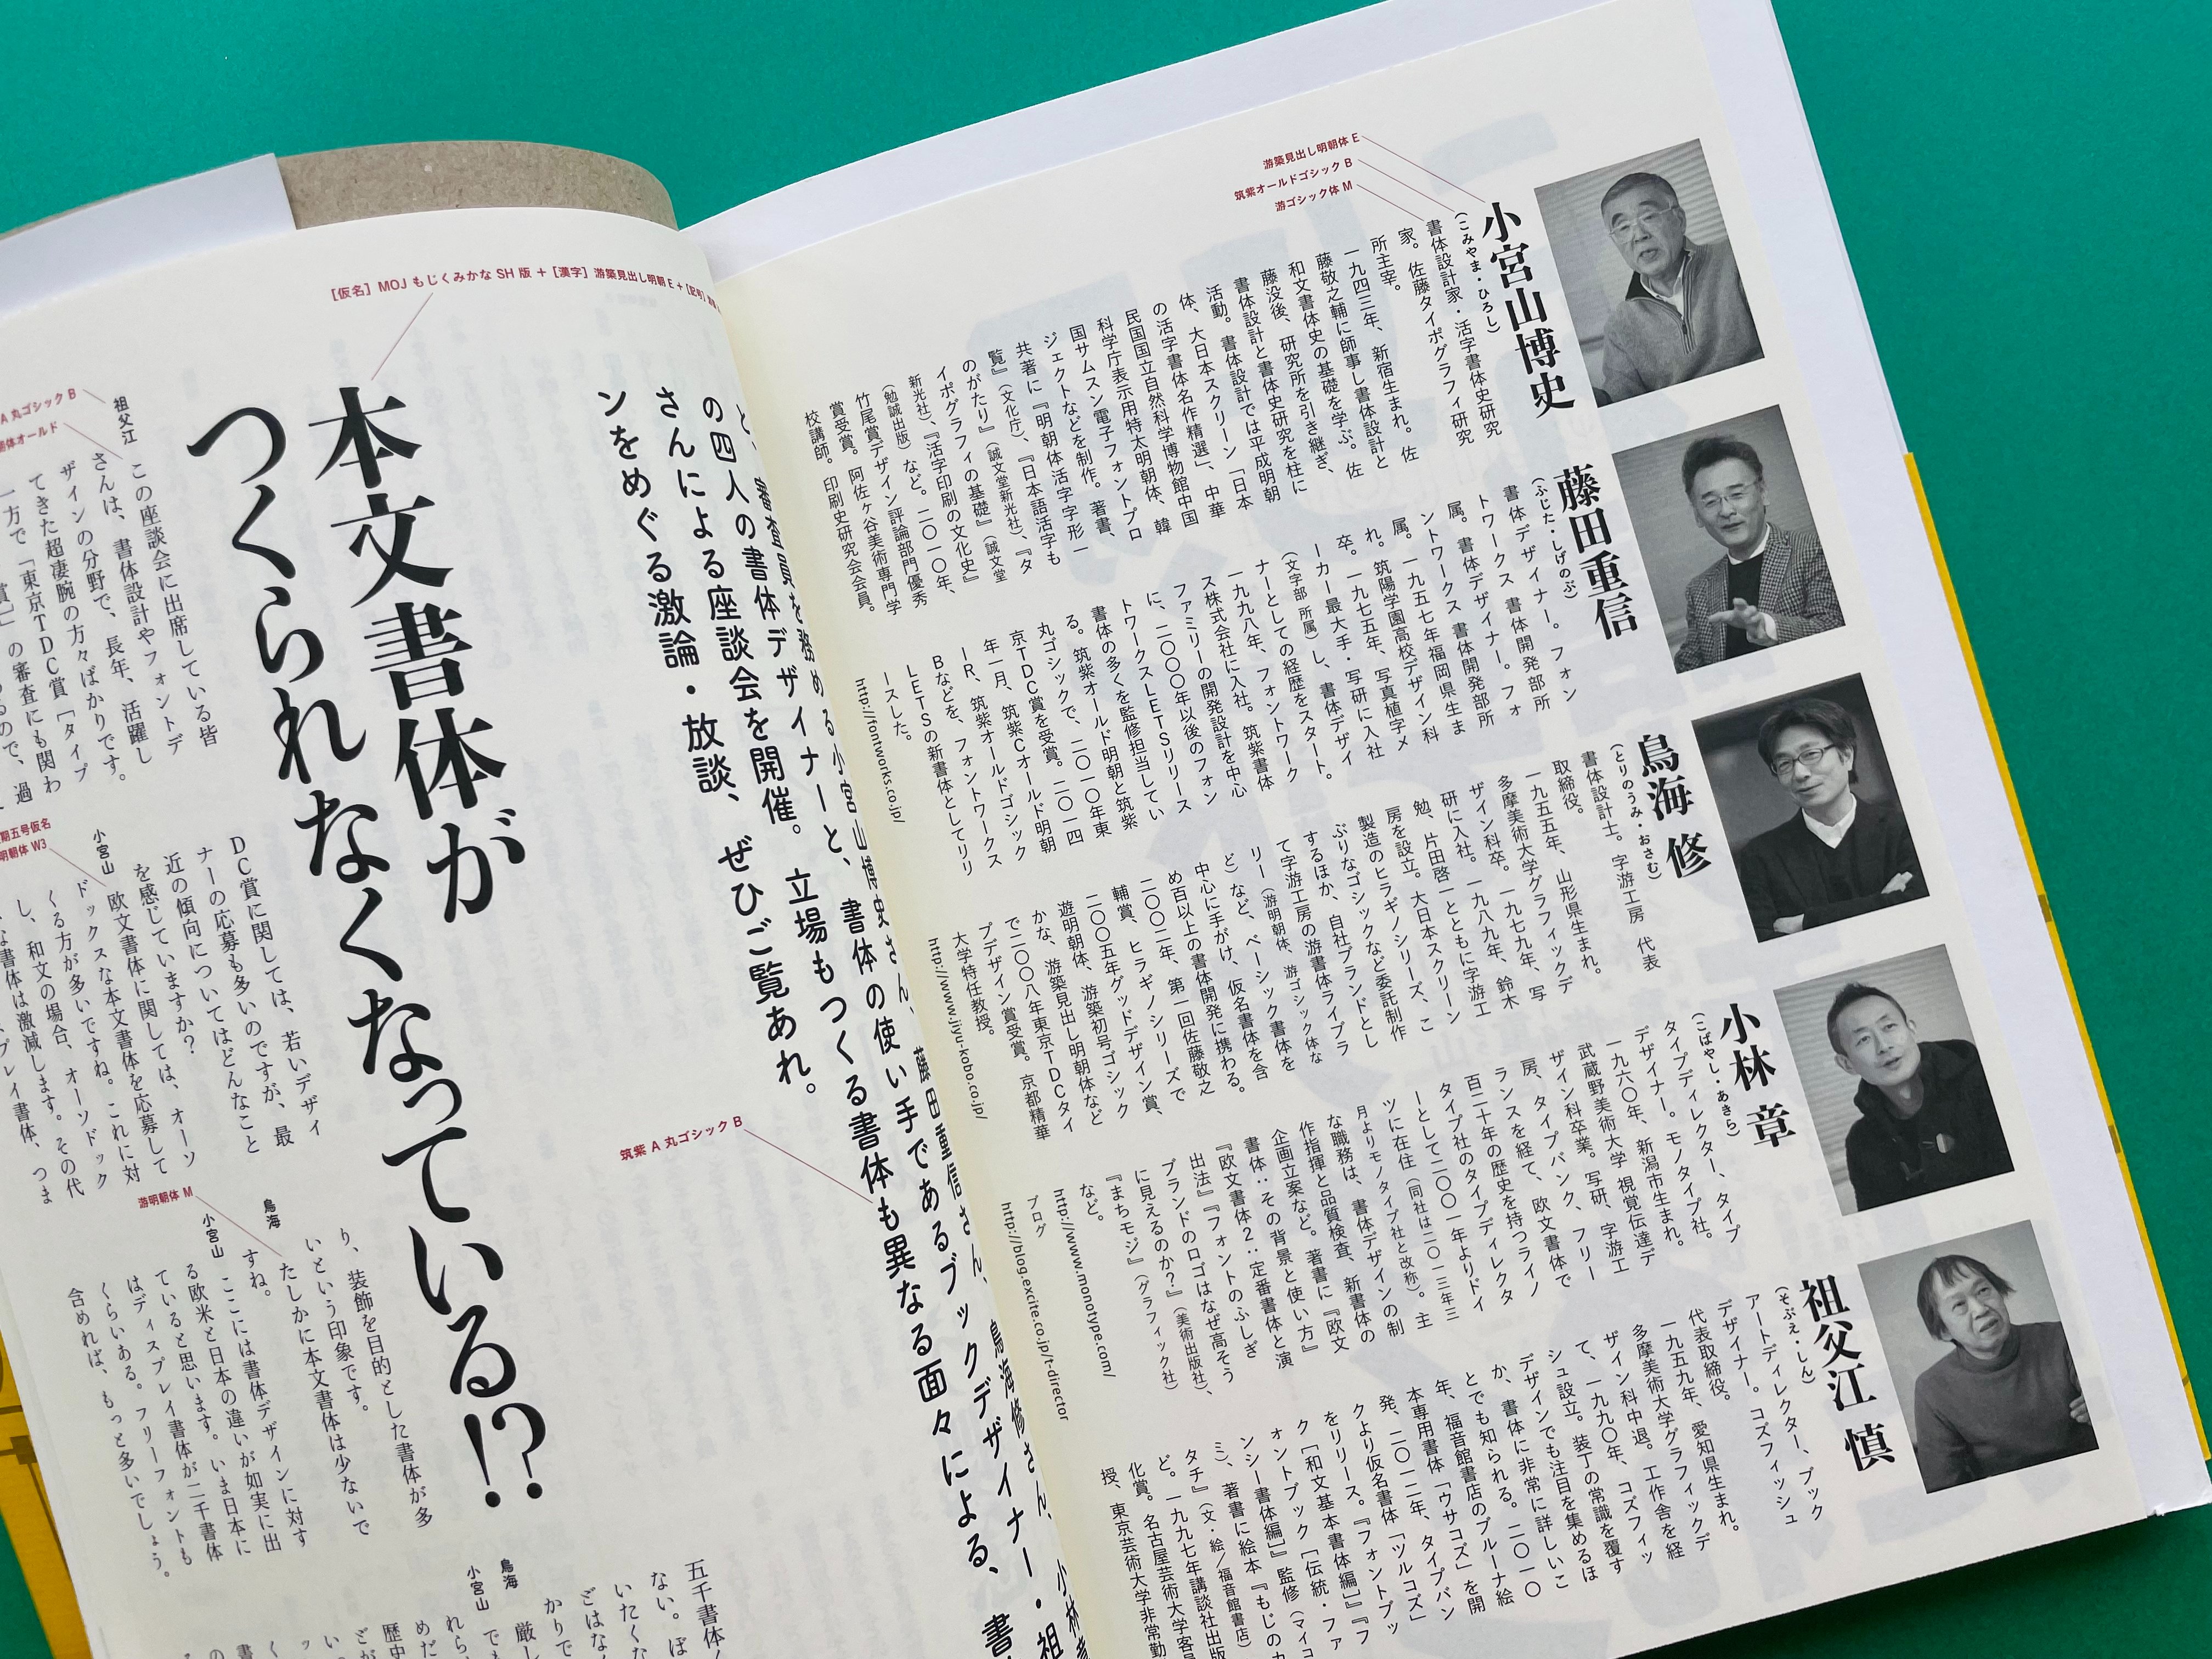 游築見出し明朝体 E
筑紫オールドゴシック B
游ゴシック体 M
小宮山博史
(こみやま・ひろし)
書体設計家・活字書体史研究
家。佐藤タイポグラフィ研究
所主宰。
一九四三年、新宿生まれ。佐
藤敬之輔に師事し書体設計と
和文書体史の基礎を学ぶ。佐
藤没後、研究所を引き継ぎ、
書体設計と書体史研究を柱に
活動。書体設計では平成明朝
体、大日本スクリーン「日本
の活字書体名作精選」、中華
民国国立自然科学博物館中国
科学庁表示用特太明朝体、韓
国サムスン電子フォントプロ
ジェクトなどを制作。著書、
共著に『明朝体活字字形一
覧』(文化庁)、『日本語活字も
のがたり』(誠文堂新光社)、『タ
イポグラフィの基礎』(誠文堂
新光社)、『活字印刷の文化史』
(勉誠出版)など。二〇一〇年、
竹尾賞デザイン評論部門優秀
賞受賞。阿佐ヶ谷美術専門学
校講師。印刷史研究会会員。
藤田重信
(ふじた・しげのぶ)
書体デザイナー。フォン
トワークス 書体開発部所
属。書体デザイナー。フォ
ントワークス 書体開発部所
属。一九五七年福岡県生ま
れ。筑陽学園高校デザイン科
卒。一九七五年、写真植字メ
ーカー最大手・写研に入社
(文字部 所属)し、書体デザイ
ナーとしての経歴をスタート。
一九九八年、フォントワーク
ス株式会社に入社。筑紫書体
ファミリーの開発設計を中心
に、二〇〇〇年以後のフォン
トワークスLETSリリース
書体の多くを監修担当してい
る。筑紫オールド明朝と筑紫
丸ゴシックで、二〇一〇年東
京TDC賞を受賞。二〇一四
年一月、筑紫Cオールド明朝
-R、筑紫オールドゴシック
Bなどを、フォントワークス
LETSの新書体としてリリ
ースした。
http://fontworks.co.jp/
鳥海 修
(とりのうみ・おさむ)
書体設計士。字游工房 代表
取締役。
一九五五年、山形県生まれ。
多摩美術大学グラフィックデ
ザイン科卒。一九七九年、写
研に入社。一九八九年、鈴木
勉、片田啓一とともに字游工
房を設立。大日本スクリーン
製造のヒラギノシリーズ、こ
ぶりなゴシックなど委託制作
するほか、自社ブランドとし
て字游工房の游書体ライブラ
リー(游明朝体、游ゴシック体な
ど)など、ベーシック書体を
中心に手がけ、仮名書体を含
め百以上の書体開発に携わる。
二〇〇二年、第一回佐藤敬之
輔賞、ヒラギノシリーズで
二〇〇五年グッドデザイン賞、
遊明朝体、游築初号ゴシック
かな、游築見出し明朝体など
で二〇〇八年東京TDCタイ
プデザイン賞受賞。京都精華
大学特任教授。
http://www.jiyu-kobo.co.jp/
小林 章
(こばやし・あきら)
タイプディレクター、タイプ
デザイナー。モノタイプ社。
一九六〇年、新潟市生まれ。
武蔵野美術大学 視覚伝達デ
ザイン科卒業。写研、字游工
房、タイプバンク、フリー
ランスを経て、欧文書体で
百二十年の歴史を持つライノ
タイプ社のタイプディレクタ
ーとして二〇〇一年よりドイ
ツに在住(同社は二〇一三年三
月よりモノタイプ社と改称)。主
な職務は、書体デザインの制
作指揮と品質検査、新書体の
企画立案など。著書に『欧文
書体:その背景と使い方』
『欧文書体2:定番書体と演
出法』『フォントのふしぎ
ブランドのロゴはなぜ高そう
に見えるのか?』(美術出版社)、
『まちモジ』(グラフィック社)
など。
http://www.monotype.com/
ブログ
http://blog.excite.co.jp/t-director
祖父江 慎
(そぶえ・しん)
アートディレクター、ブック
デザイナー。コズフィッシュ
代表取締役。
一九五九年、愛知県生まれ。
多摩美術大学グラフィックデ
ザイン科中退。工作舎を経
て、一九九〇年、コズフィッ
シュ設立。装丁の常識を覆す
デザインでも注目を集めるほ
か、書体に非常に詳しいこ
とでも知られる。二〇一〇
年、福音館書店のブルーナ絵
本専用書体「ウサコズ」を開
発、二〇一二年、タイプバン
クより仮名書体「ツルコズ」
をリリース。『フォントブッ
ク[和文基本書体編]』『フ
ォントブック[伝統・ファ
ンシー書体編]』監修(マイコ
ミ)、著書に絵本『もじのカ
タチ』(文・絵/福音館書店)
ど。一九九七年講談社出版
化賞。名古屋芸術大学客員
授、東京芸術大学非常勤
と、審査員を務める小宮山博史さん、藤田重信さん、鳥海修さん、小林章
の四人の書体デザイナーと、書体の使い手であるブックデザイナー・祖
さんによる座談会を開催。立場もつくる書体も異なる面々による、書
ンをめぐる激論・放談、ぜひご覧あれ。
筑紫 A 丸ゴシック B
[仮名] MOJ もじくみかな SH 版 + [漢字] 游築見出し明朝 E + [記号]
本文書体が
つくられなくなっている!?
A 丸ゴシック B
朝体オールド
祖父江
この座談会に出席している皆
さんは、書体設計やフォントデ
ザインの分野で、長年、活躍し
てきた超凄腕の方々ばかりです。
一方で「東京TDC賞[タイプ
賞]」の審査にも関わ
るので、過
DC賞に関しては、若いデザイ
ナーの応募も多いのですが、最
近の傾向についてはどんなこと
を感じていますか?
期五号仮名
明朝体 W3
小宮山
欧文書体に関しては、オーソ
ドックスな本文書体を応募して
くる方が多いですね。これに対
し、和文の場合、オーソドック
な書体は激減します。その代
プレイ書体、つま
り、装飾を目的とした書体が多
いという印象です。
游明朝体 M
鳥海
たしかに本文書体は少ないで
すね。
小宮山
ここには書体デザインに対す
る欧米と日本の違いが如実に出
ていると思います。いま日本に
はディスプレイ書体が二千書体
くらいある。フリーフォントも
含めれば、もっと多いでしょう。
五千書体
ない。ぼ
いたくな
どはなく
かりで
鳥海
厳し
小宮山
でも
れら
めだ
歴史